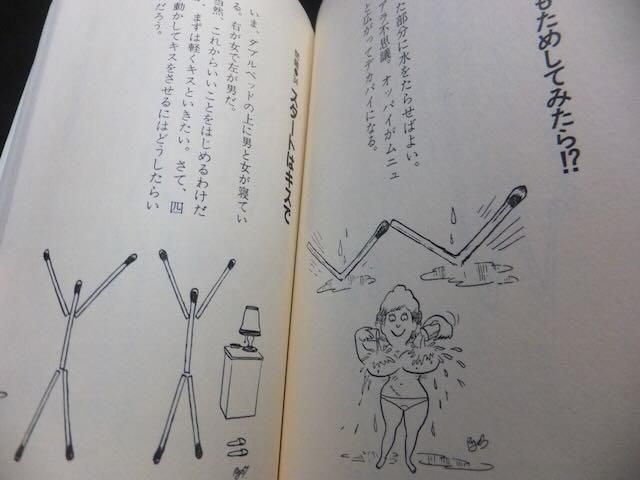 もためしてみたら!?
た部分に水をたらせばよい。
アラ不思議、オッパイがムニュ
と広がってデカパイになる。
いま、ダブルベッドの上に男と女が寝てい
る。右が女で左が男だ。
当然、これからいいことをはじめるわけだ
まずは軽くキスといきたい。さて、四
動かしてキスをさせるにはどうしたらい
だろう。